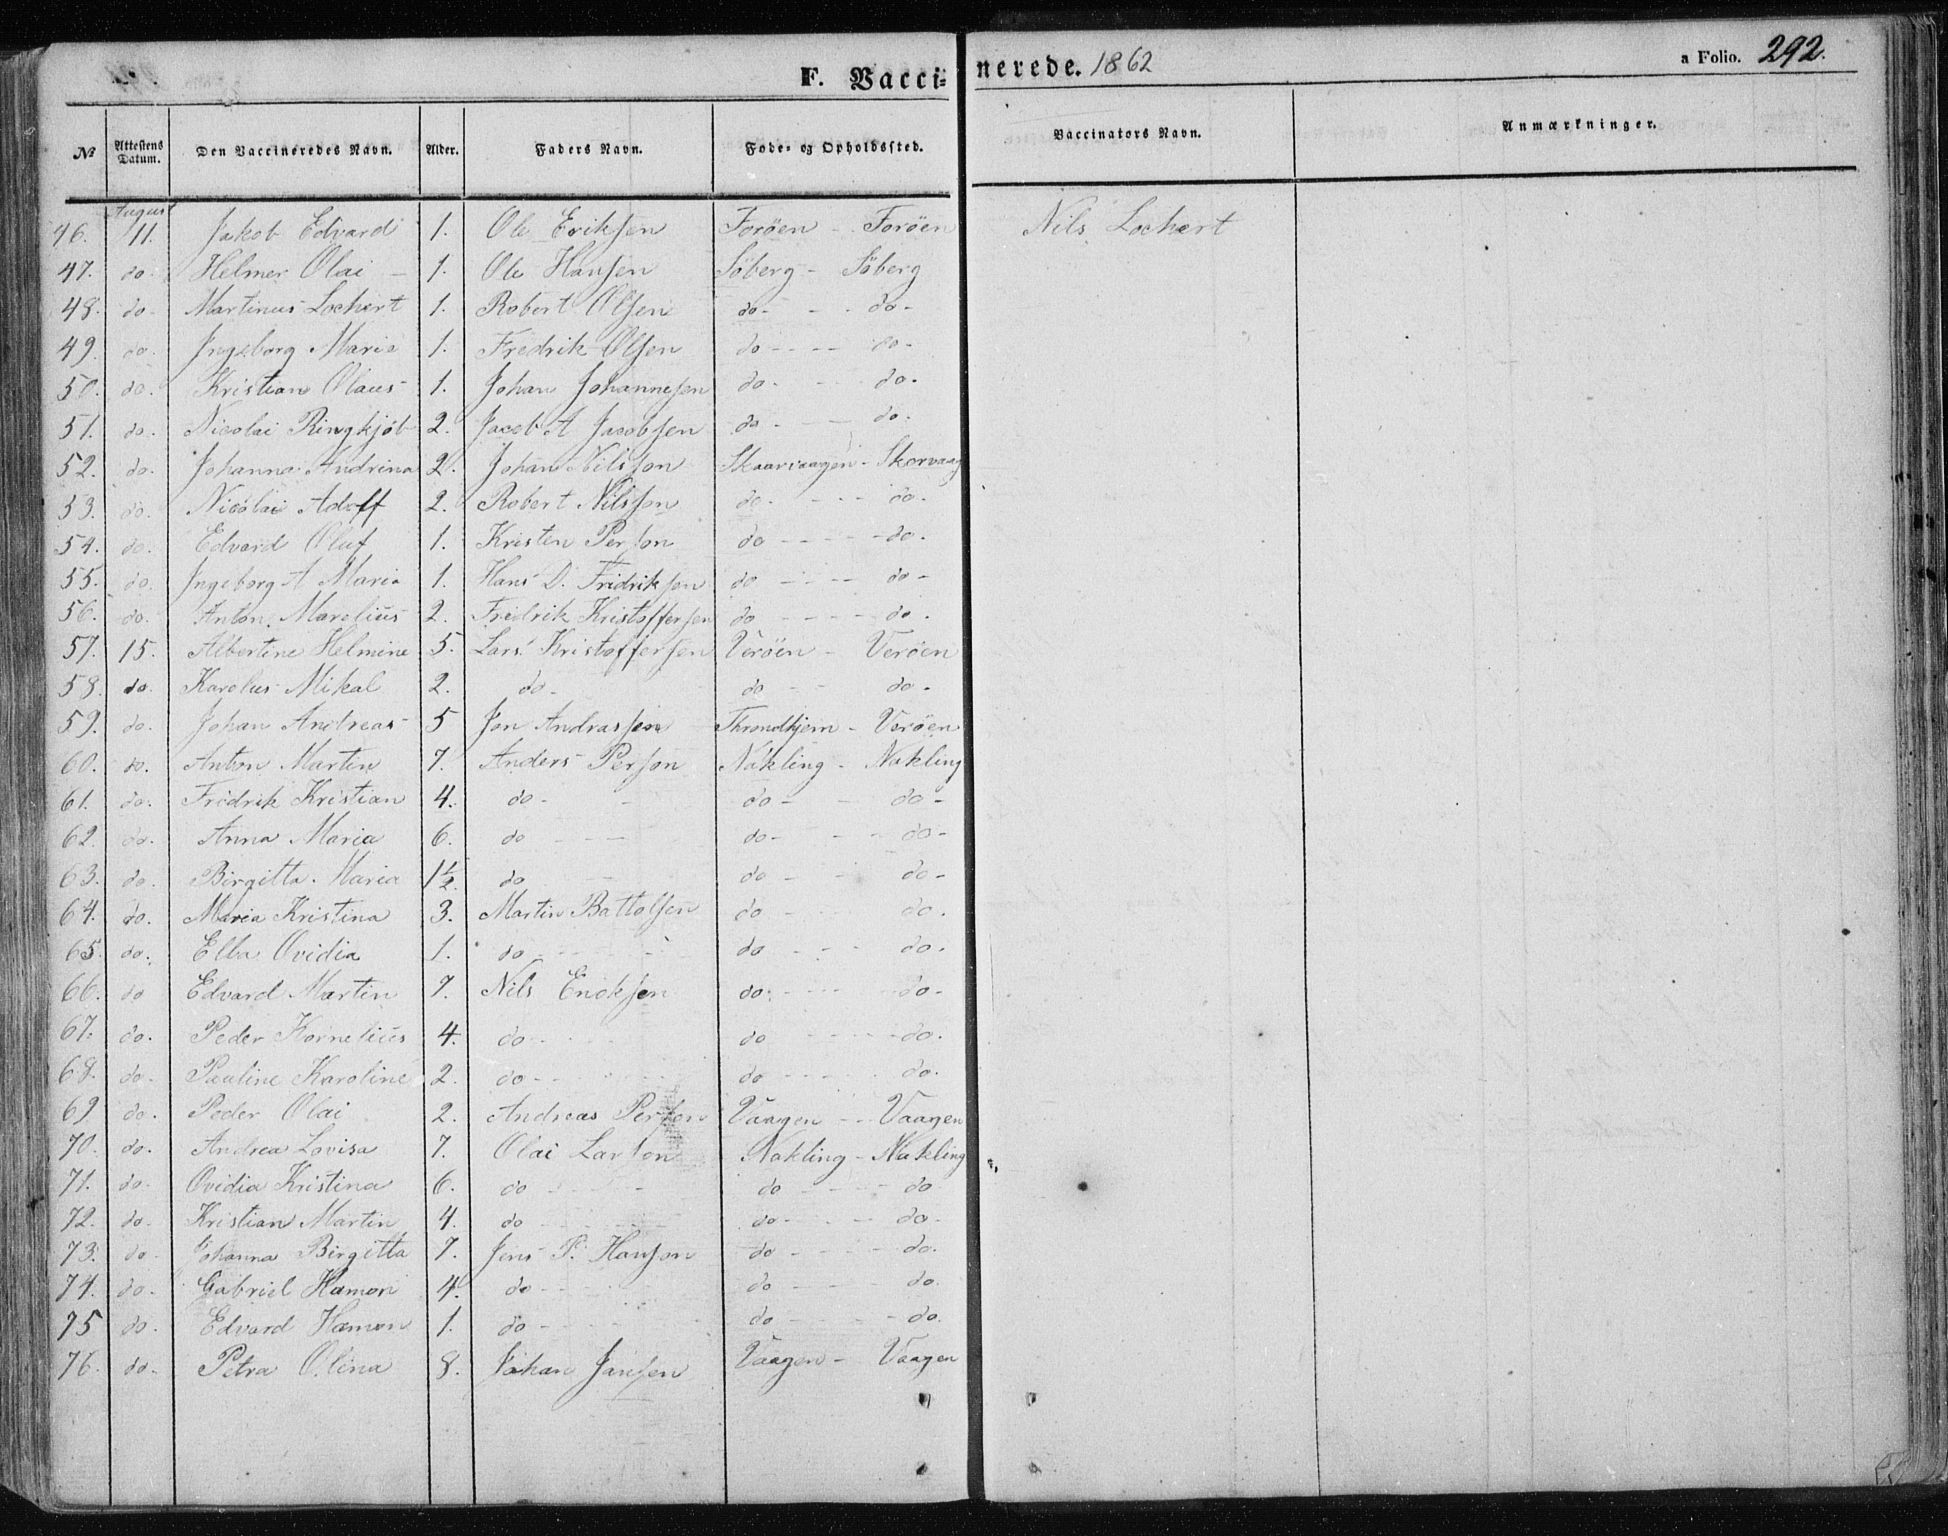 F. Vaccinerede. 1862 a Folio. 292.
No Attestens Datum. Den Vaccineredes Navn. Alder. Faders Navn. Føde- og Opholdssted. Vaccinators Navn. Anmærkninger.
August
46. 11. Jakob Edvard 1. Ole Eriksen Forøen - Forøen Nils Lochert
47. do. Helmer Olai - 1. Ole Hansen Söberg - Söberg
48. do. Martinus Lochert 1. Robert Olsen do - - - do -
49. do. Ingeborg Marie 1. Fredrik Olsen do - - - - do -
50. do. Kristian Olaus 1. Johan Johannesen do - - - do -
51. do. Nicolai Ringkjöb 2. Jacob A Jacobsen do - - do -
52. do. Johanna Andrina 2. Johan Nilsson Skaarvaagen - Skorvaag
53. do. Nicolai Adoff 2. Robert Nilsson do - - - - do -
54. do. Edvard Oluf 1. Kristen Person do - - - - - do -
55. do. Ingeborg A Maria 1. Hans D. Fridriksen do - - - - do -
56. do. Anton Marelius 2. Fredrik Kristoffersen do - - - - do .
57. 15. Albertine Helmine 5. Lars Kristoffersen Verøen - Verøen
58. do. Karolus Mikal 2. do - do - - do -
59. do. Johan Andreas 5 Jon Andrassen Throndhjem - Verøen
60. do. Anton Martin 7. Anders Person Nakling - Nakling
61. do. Fridrik Kristian 4. do - - do - - do -
62. do. Anna Maria 6. do - - - do - - - do -
63. do. Birgitta Maria 1½. do do - - - do -
64. do. Maria Kristina 3. Martin Battolsen do - - - do .
65. do. Elba Ovidia 1. do - - - do - - do .
66. do Edvard Martin 7. Nils Enoksen do - - - - do -
67. do. Peder Kornelius 4. do - - do - - - - do .
68. do Pauline Karoline 2. do - - do - - - - do .
69 do. Peder Olai 2. Andreas Person Vaagen - - Vaagen
70. do. Andrea Lovisa 7. Olai Larson Nakling - Nakling
71. do. Ovidia Kristina 6. do - - - do - - - - do
72. do. Kristian Martin 4. do - - - do - - - do -
73. do. Johanna Birgitta 7. Jens P. Hanson do - - - - do.
74. do. Gabriel Hamon 4. do - - do - - - do
75 do. Edvard Hamon 1. do - - - do - - - do.
76. do. Petra Olina 8. Johan Jansen Vaagen - Vaagen